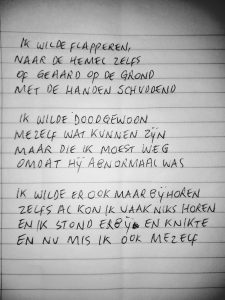 IK WILDE FLAPPEREN,
NAAR DE HEMEL ZELFS
OF GEAARD OP DE GROND
MET DE HANDEN SCHUDDEND
IK WILDE DOODGEWOON
MEZELF WAT KUNNEN ZIJN
MAAR DIE IK MOEST WEG
OMDAT HIJ ABNORMAAL WAS
IK WILDE ER OOK MAAR BIJ HOREN
ZELFS AL KON IK VAAK NIKS HOREN
EN IK STOND ERBIJ EN KNIKTE
EN NU MIS IK OOK MEZELF